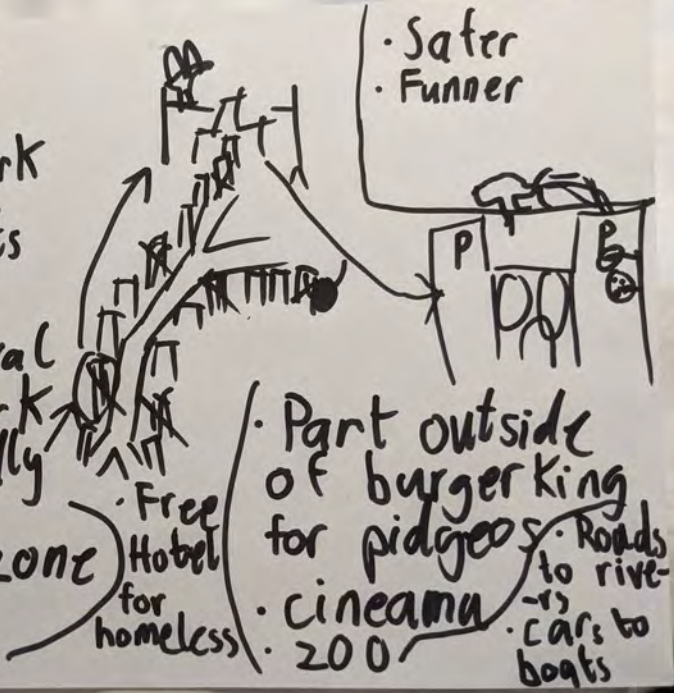 · Safer
· Funner
rk
s
P P
al
k
lly
zone
· Free
Hotel
for
homeless
· Part outside
of burger King
for pidgeos
· cineama
· 200
· Roads
to rive-
-rs
· cars to
boats